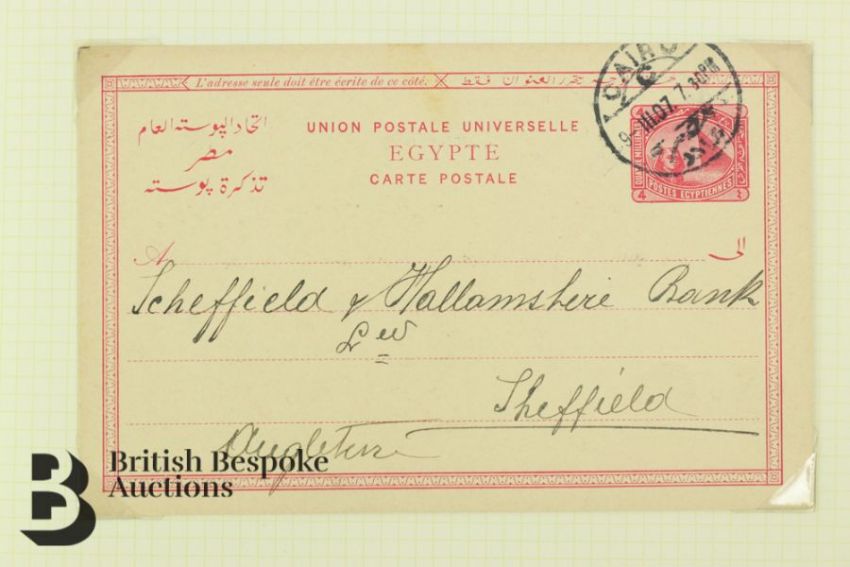 L'adresse seule doit être écrite de ce côté.
اتحاد البوسته العام
مصر
تذكرة بوسته
UNION POSTALE UNIVERSELLE
EGYPTE
CARTE POSTALE
CAIRO
III.07. 7.30PM
4
POSTES EGYPTIENNES
A
الى
Scheffield & Hallamshire Bank
Ld
Sheffield
Angleterre
British Bespoke
Auctions
B